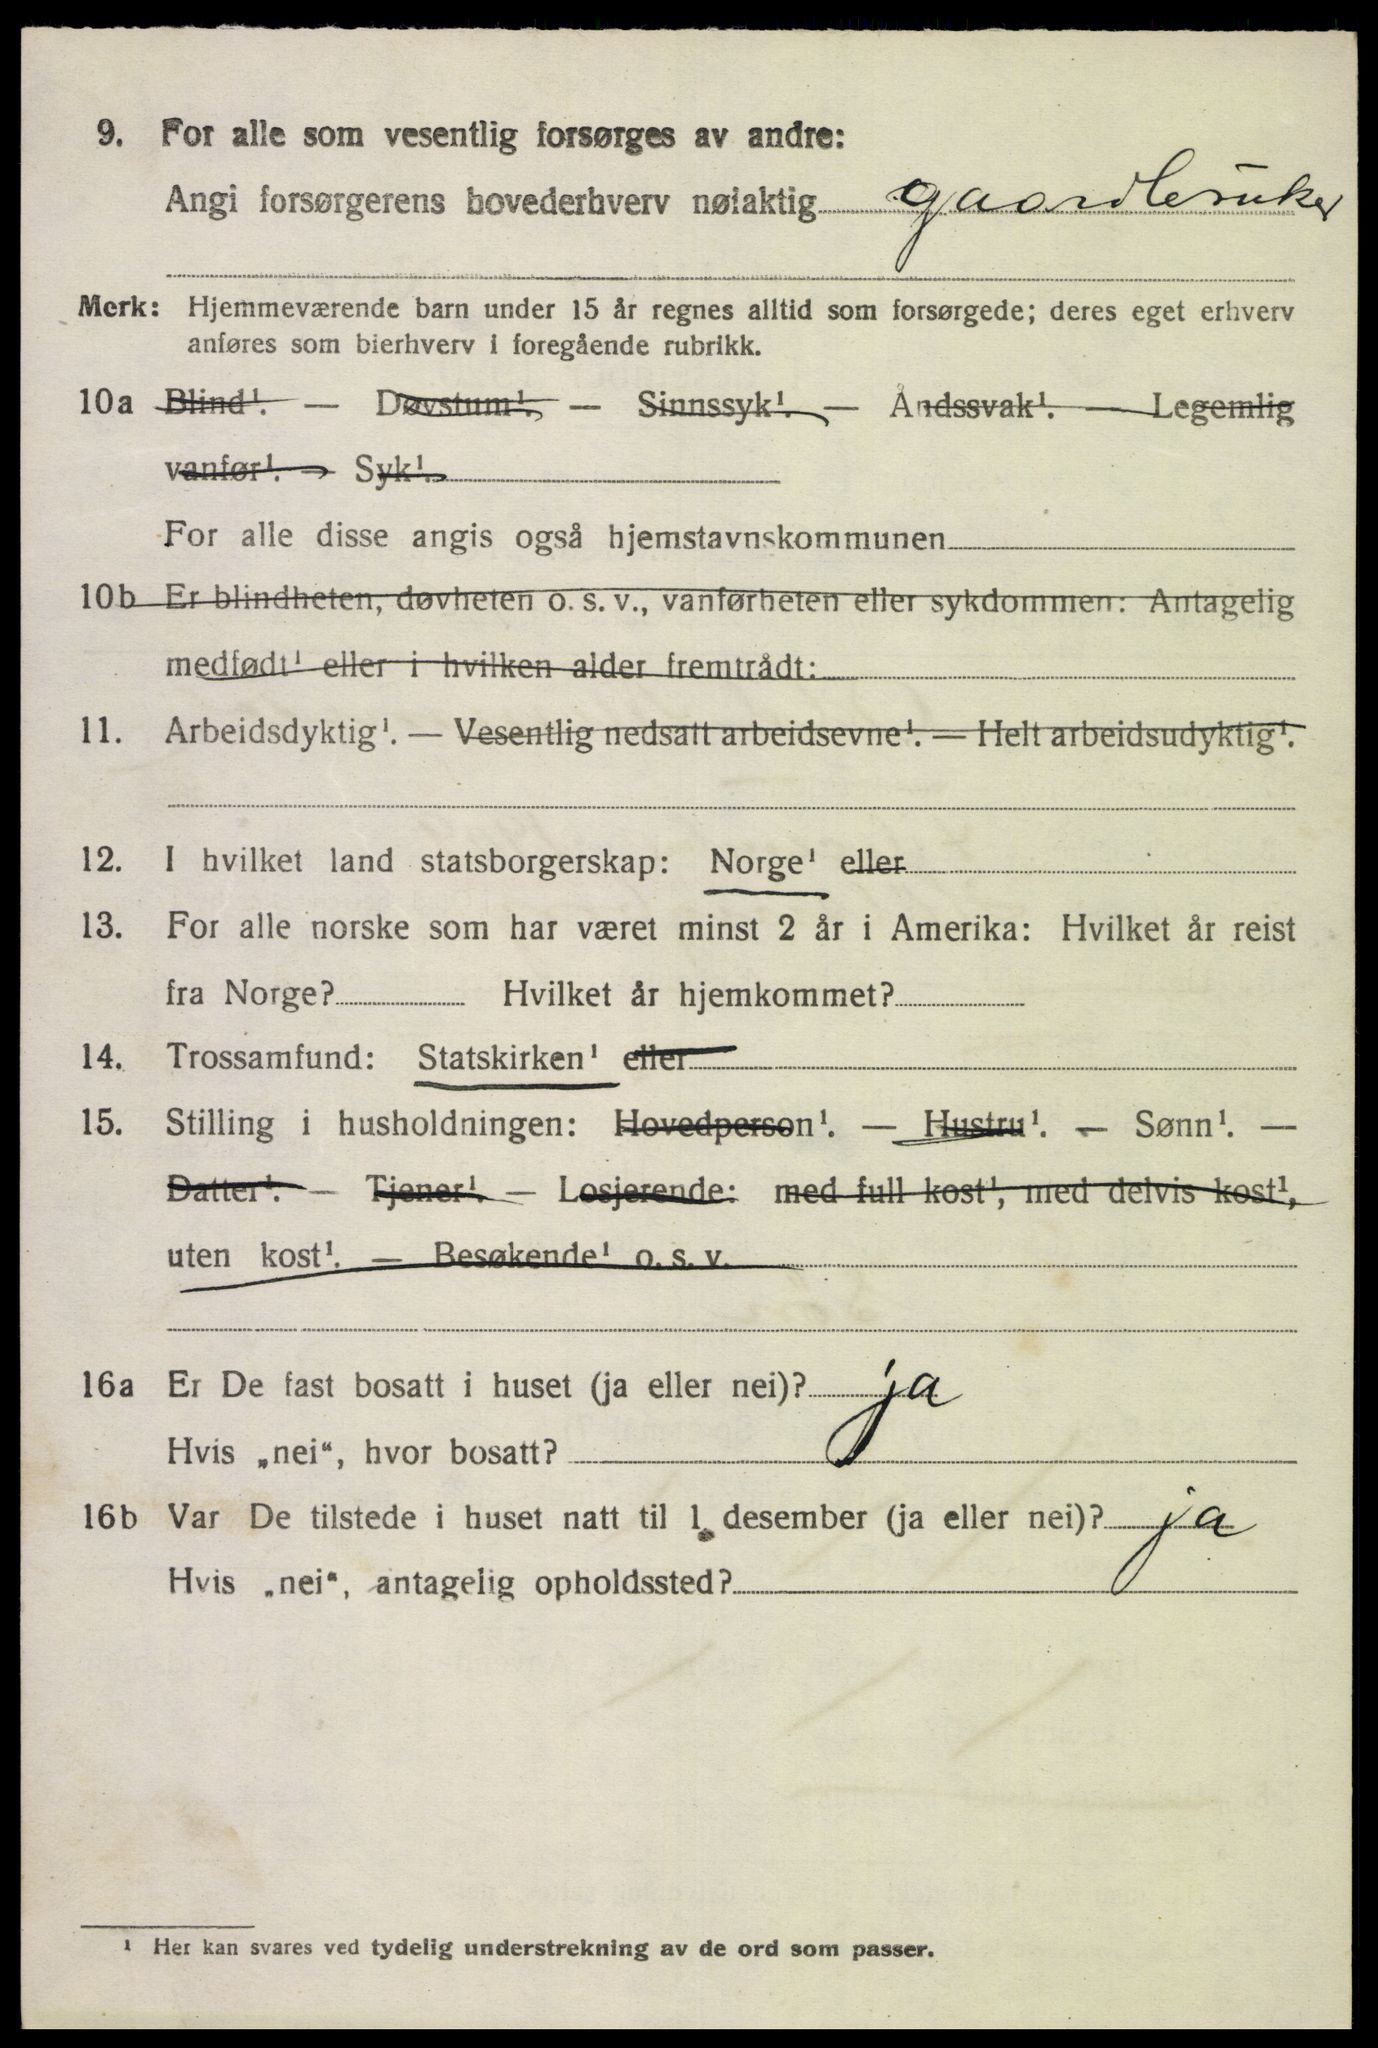 9. For alle som vesentlig forsørges av andre:
Angi forsørgerens hovederhverv nøiaktig gaardbruker
Merk: Hjemmeværende barn under 15 år regnes alltid som forsørgede; deres eget erhverv
anføres som bierhverv i foregående rubrikk.
10a Blind¹. — Døvstum¹. — Sinnssyk¹. — Åndssvak¹. — Legemlig
vanfør¹. — Syk¹.
For alle disse angis også hjemstavnskommunen
10b Er blindheten, døvheten o. s. v., vanførheten eller sykdommen: Antagelig
medfødt¹ eller i hvilken alder fremtrådt:
11. Arbeidsdyktig¹. — Vesentlig nedsatt arbeidsevne¹. — Helt arbeidsudyktig¹.
12. I hvilket land statsborgerskap: Norge¹ eller
13. For alle norske som har været minst 2 år i Amerika: Hvilket år reist
fra Norge? Hvilket år hjemkommet?
14. Trossamfund: Statskirken¹ eller
15. Stilling i husholdningen: Hovedperson¹. — Hustru¹. — Sønn¹. —
Datter¹. — Tjener¹. — Losjerende: med full kost¹, med delvis kost¹,
uten kost¹. — Besøkende¹ o. s. v.
16a Er De fast bosatt i huset (ja eller nei)? ja
Hvis „nei“, hvor bosatt?
16b Var De tilstede i huset natt til 1. desember (ja eller nei)? ja
Hvis „nei“, antagelig opholdssted?
¹ Her kan svares ved tydelig understrekning av de ord som passer.